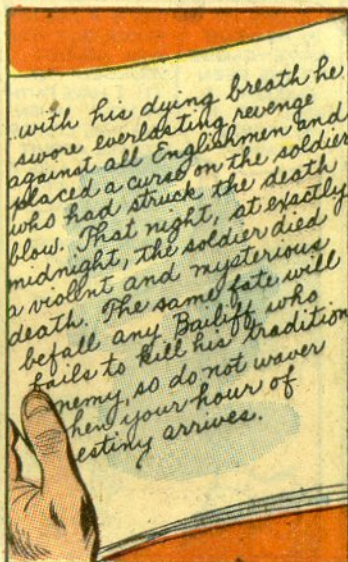 ..with his dying breath he
swore everlasting revenge
against all Englishmen and
placed a curse on the soldier
who had struck the death
blow. That night, at exactly
midnight, the soldier died
a violent and mysterious
death. The same fate will
befall any Bailiff who
fails to kill his tradition
nemy, so do not waver
hen your hour of
estiny arrives.